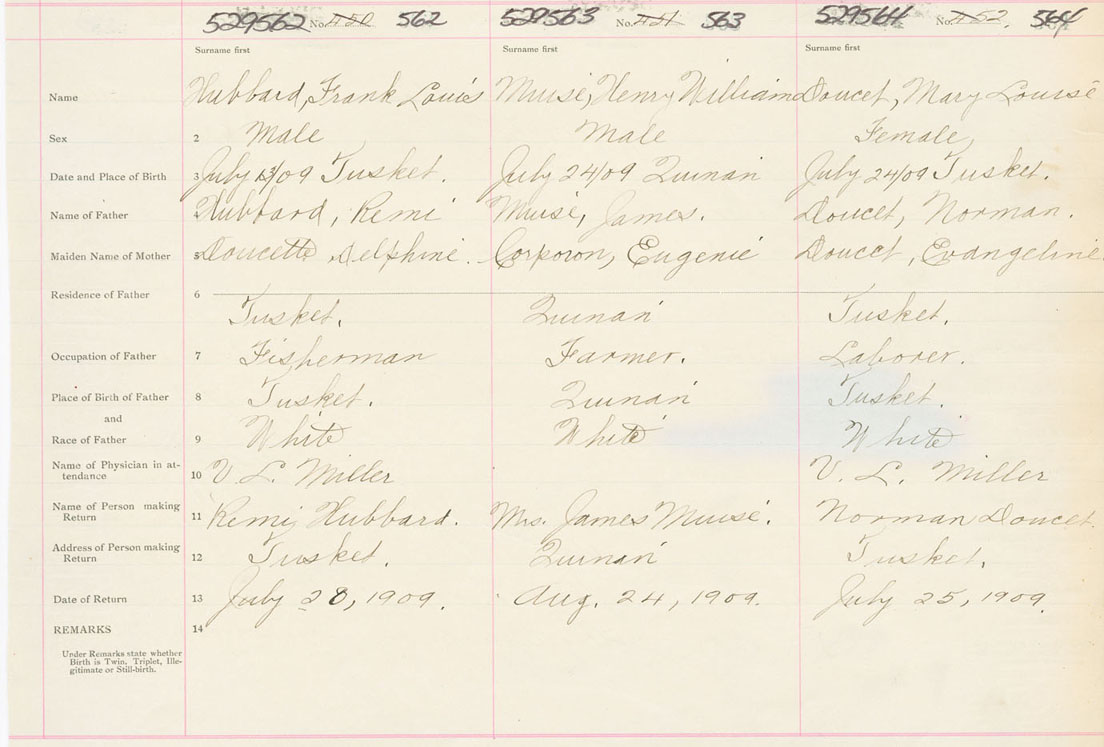 529562 No. 450 562 529563 No. 451 563 529564 No. 452. 564
Surname first Surname first Surname first
Name Hubbard, Frank Louis Muise, Henry William Doucet, Mary Louise
Sex 2 Male Male Female
Date and Place of Birth 3 July /09 Tusket. July 24/09 Quinan July 24/09 Tusket.
Name of Father 4 Hubbard, Remi Muise, James. Doucet, Norman.
Maiden Name of Mother 5 Doucette, Delphine. Corporon, Eugenie Doucet, Evangeline
Residence of Father 6
Tusket. Quinan Tusket.
Occupation of Father 7 Fisherman Farmer. Laborer.
Place of Birth of Father 8 Tusket. Quinan Tusket.
and
Race of Father 9 White White White
Name of Physician in at-
tendance 10 V. L. Miller V. L. Miller
Name of Person making
Return 11 Remi Hubbard. Mrs. James Muise. Norman Doucet.
Address of Person making
Return 12 Tusket. Quinan Tusket.
Date of Return 13 July 28, 1909. Aug. 24, 1909. July 25, 1909.
REMARKS 14
Under Remarks state whether
Birth is Twin, Triplet, Ille-
gitimate or Still-birth.